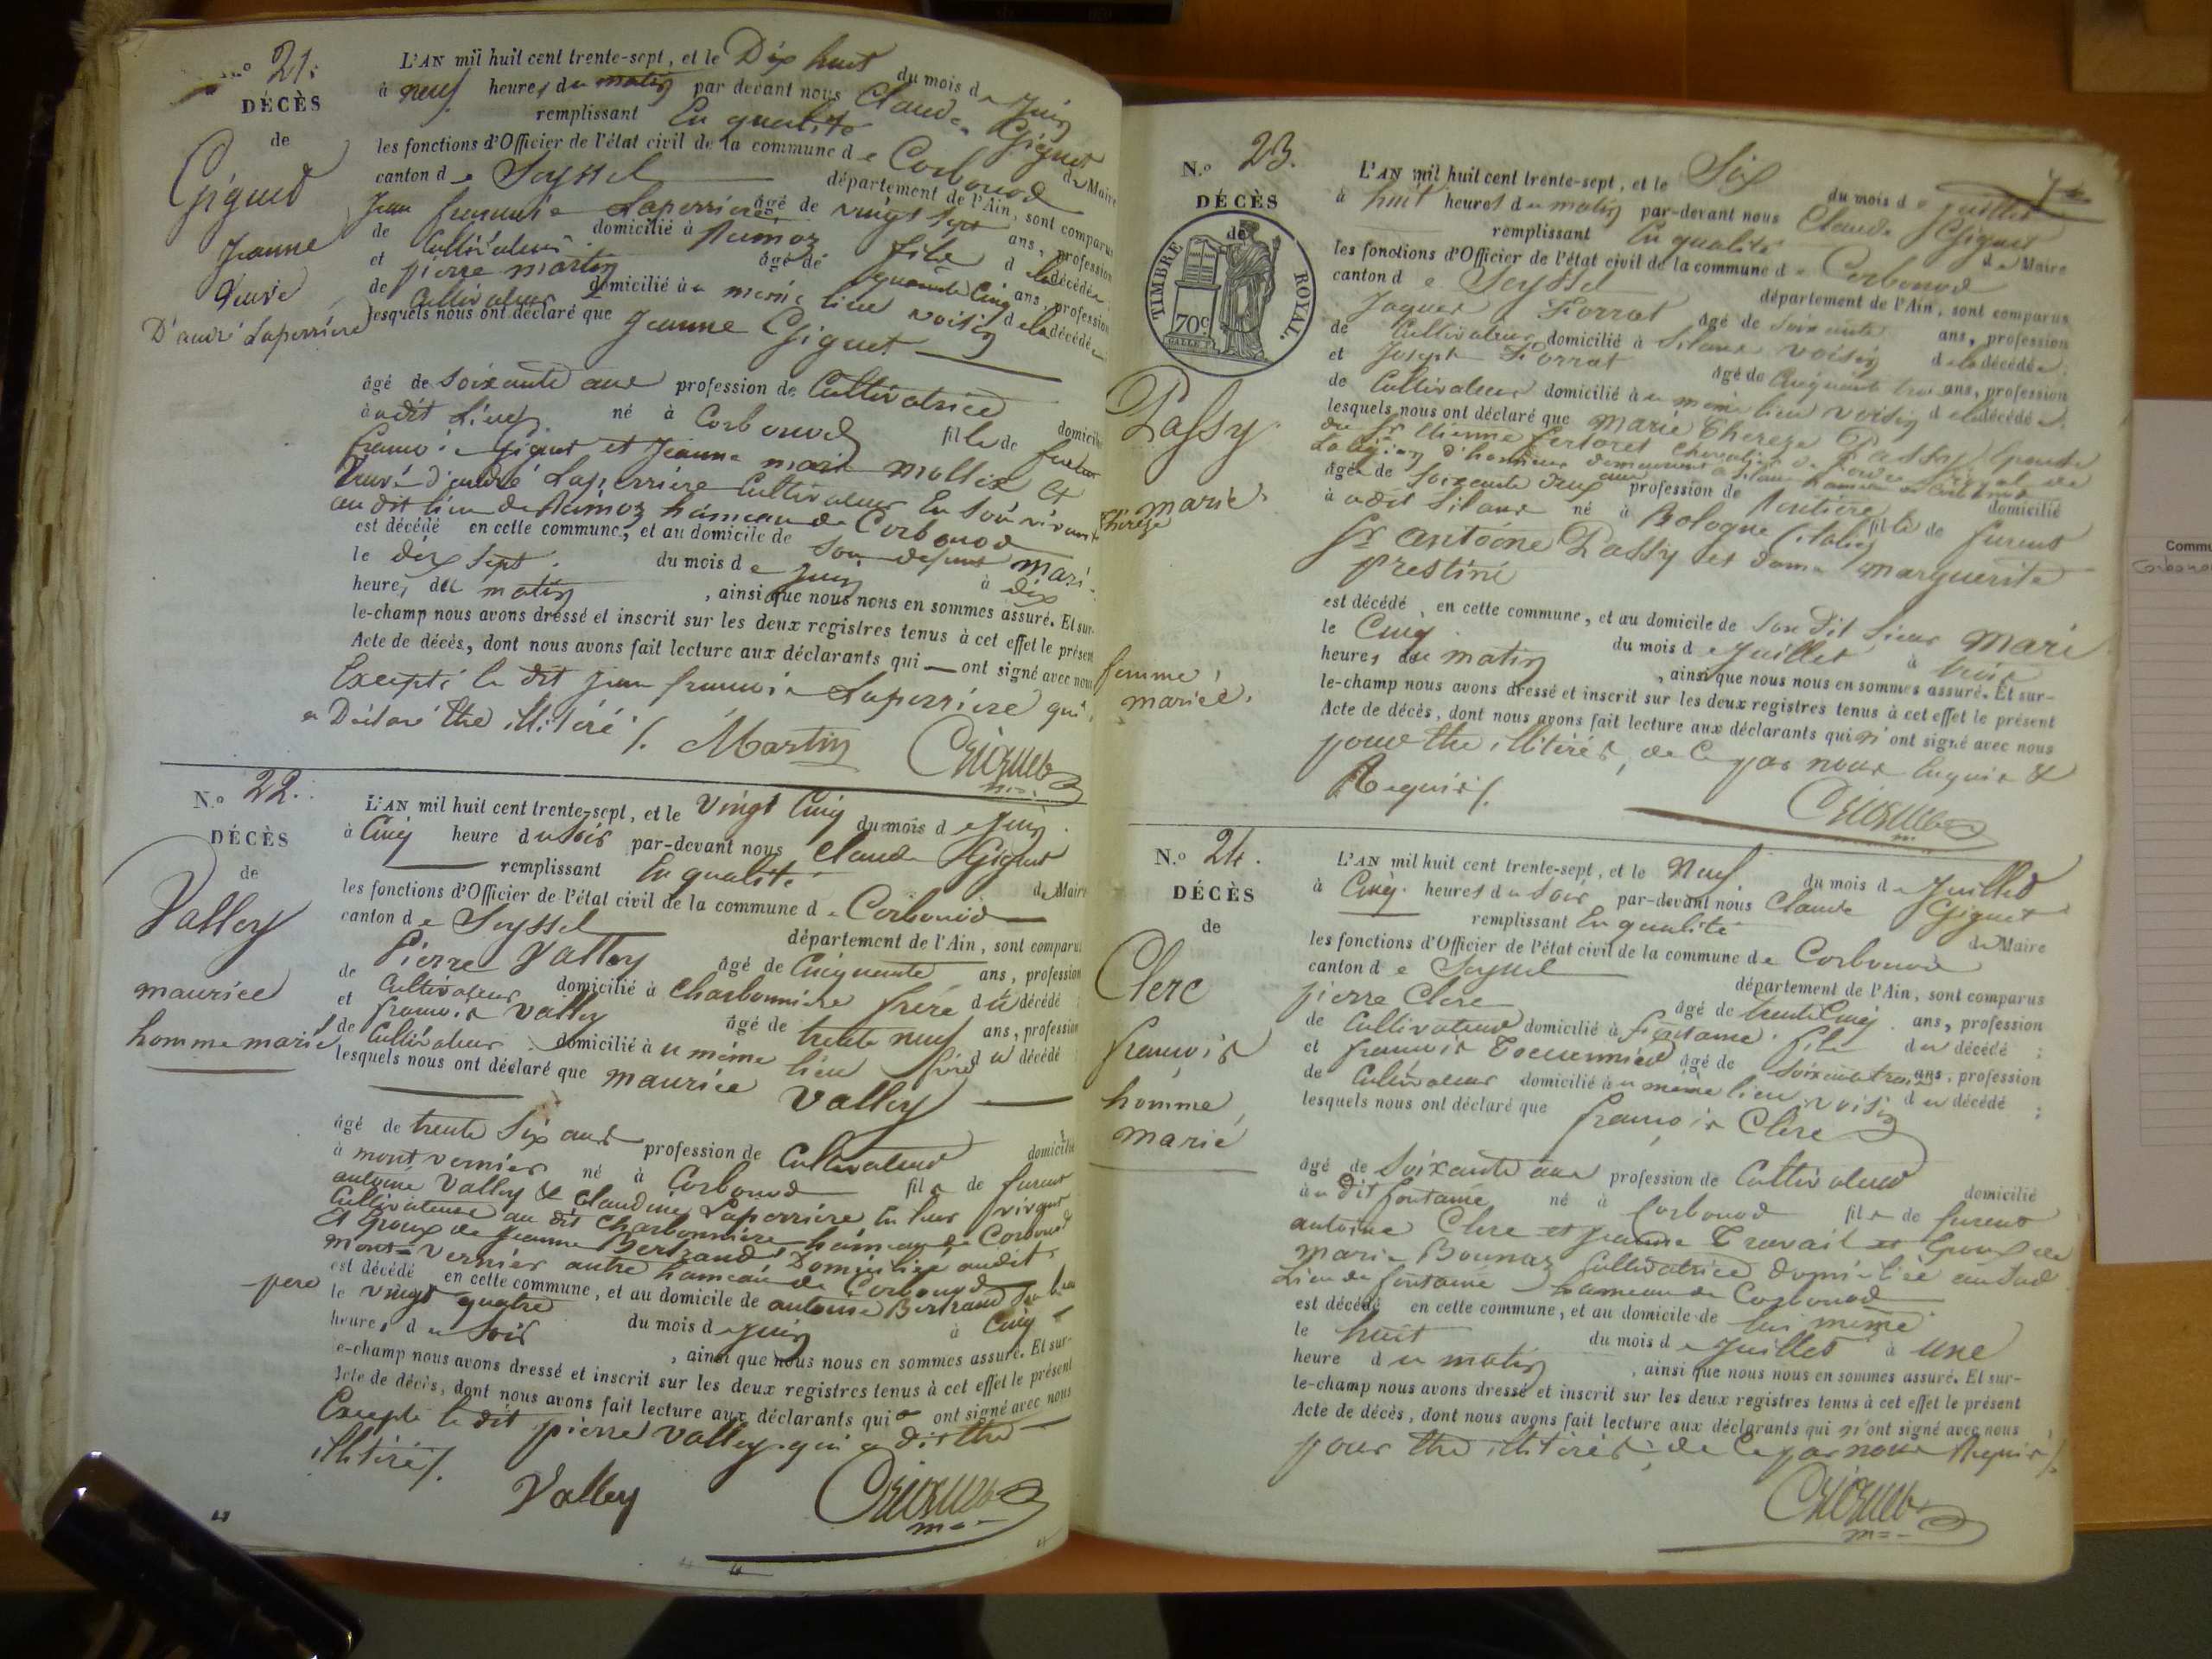 N.o 21.
DÉCÈS
de
Giguet
Jeanne
Veuve
D'andré Laperrière
L'AN mil huit cent trente-sept, et le Dix huit du mois de Juin
à neuf heures du matin par devant nous Claude Giguet
remplissant En qualité de Maire
les fonctions d'Officier de l'état civil de la commune de Corbonod
canton de Seyssel département de l'Ain, sont comparus
Jean françois Laperrière âgé de vingt sept ans, profession
de Cultivateur domicilié à Rumoz fils de la décédée
et pierre martin âgé de quarante Cinq ans, profession
de Cultivateur domicilié au même lieu voisin de la décédée
lesquels nous ont déclaré que Jeanne Giguet
âgé de soixante ans profession de Cultivatrice domicilié
au dit Lieu né à Corbonod fille de furent
françois Giguet et Jeanne marie mollex et
Veuve d'andré Laperrière Cultivateur En son vivant
au dit lieu de Rumoz hameau de Corbonod
est décédé en cette commune, et au domicile de son defunt mari
le dix sept du mois de Juin à dix
heures du matin, ainsi que nous nous en sommes assuré. Et sur-
le-champ nous avons dressé et inscrit sur les deux registres tenus à cet effet le présent
Acte de décès, dont nous avons fait lecture aux déclarants qui ont signé avec nous
Excepté le dit jean françois Laperrière qui
a Déclaré Etre illitéré /. Martin Giguet
N.o 22.
DÉCÈS
de
Valley
maurice
homme marié
L'AN mil huit cent trente-sept, et le vingt Cinq du mois de Juin
à Cinq heure du soir par-devant nous Claude Giguet
remplissant En qualité de Maire
les fonctions d'Officier de l'état civil de la commune de Corbonod
canton de Seyssel département de l'Ain, sont comparus
Pierre Valley âgé de Cinquante ans, profession
de Cultivateur domicilié à Charbonnière frère du décédé
et françois Valley âgé de trente neuf ans, profession
de Cultivateur domicilié au même lieu frère du décédé
lesquels nous ont déclaré que maurice Valley
âgé de trente Six ans profession de Cultivateur domicilié
à mont vernier né à Corbonod fils de furent
antoine Valley & Claudine Laperrière En leur vivant
Cultivateurs au dit Charbonnière hameau de Corbonod
Et Epoux de Jeanne Bertrand Domiciliée audit
mont-vernier autre hameau de Corbonod
est décédé en cette commune, et au domicile de antoine Bertrand son beau
-pere le vingt quatre du mois de juin à Cinq
heures du soir, ainsi que nous nous en sommes assuré. Et sur-
e-champ nous avons dressé et inscrit sur les deux registres tenus à cet effet le présent
Acte de décès, dont nous avons fait lecture aux déclarants qui ont signé avec nous
Excepté le dit pierre Valley qui a dit Etre
illitéré /.
Valley Giguet
N.o 23.
DÉCÈS
de
TIMBRE ROYAL.
70c
Passy
marie
Thérèze
femme
mariée.
L'AN mil huit cent trente-sept, et le Six du mois de juillet
à huit heures du matin par-devant nous Claude Giguet
remplissant En qualité de Maire
les fonctions d'Officier de l'état civil de la commune de Corbonod
canton de Seyssel département de l'Ain, sont comparus
Jaques Forrat âgé de soixante ans, profession
de Cultivateur domicilié à Silans voisin de la décédée
et Joseph Forrat âgé de Cinquante trois ans, profession
de Cultivateur domicilié au même lieu voisin de la décédée
lesquels nous ont déclaré que marie Thereze Passy Epouse
du Sr Etienne fertoret Chevalier de l'ordre Royal de
La légion d'honneur demeurant à Silans hameau de Corbonod
âgée de soixante deux ans profession de rentière domicilié
à udit Silans né à Bologne (italie) fille de furent
Sr antoine Passy et dame marguerite
prestini
est décédé en cette commune, et au domicile de son dit Sieur Mari
le Cinq du mois de juillet à trois
heures du matin, ainsi que nous nous en sommes assuré. Et sur-
le-champ nous avons dressé et inscrit sur les deux registres tenus à cet effet le présent
Acte de décès, dont nous avons fait lecture aux déclarants qui n'ont signé avec nous
pour Etre illitérés, de Ce par nous Enquis &
Requis /.
Giguet
N.o 24.
DÉCÈS
de
Clerc
françois
homme
marié
L'AN mil huit cent trente-sept, et le Neuf du mois de Juillet
à Cinq heures du soir par-devant nous Claude Giguet
remplissant En qualité de Maire
les fonctions d'Officier de l'état civil de la commune de Corbonod
canton de Seyssel département de l'Ain, sont comparus
pierre Clerc âgé de trente Cinq ans, profession
de Cultivateur domicilié à fontaine fils du décédé ;
et françois âgé de soixante trois ans, profession
de Cultivateur domicilié au même lieu voisin du décédé ;
lesquels nous ont déclaré que françois Clerc
âgé de Soixante ans profession de Cultivateur domicilié
à u dit fontaine né à Corbonod fils de furent
antoine Clerc et jeanne Travail et Epoux de
marie Bounaz Cultivatrice domiciliée audit
Lieu de fontaine hameau de Corbonod
est décédé en cette commune, et au domicile de lui même
le huit du mois de Juillet à une
heure du matin, ainsi que nous nous en sommes assuré. Et sur-
le-champ nous avons dressé et inscrit sur les deux registres tenus à cet effet le présent
Acte de décès, dont nous avons fait lecture aux déclarants qui n'ont signé avec nous
pour Etre illitérés ; de Ce par nous Requis /.
Giguet
Commu
Corbono